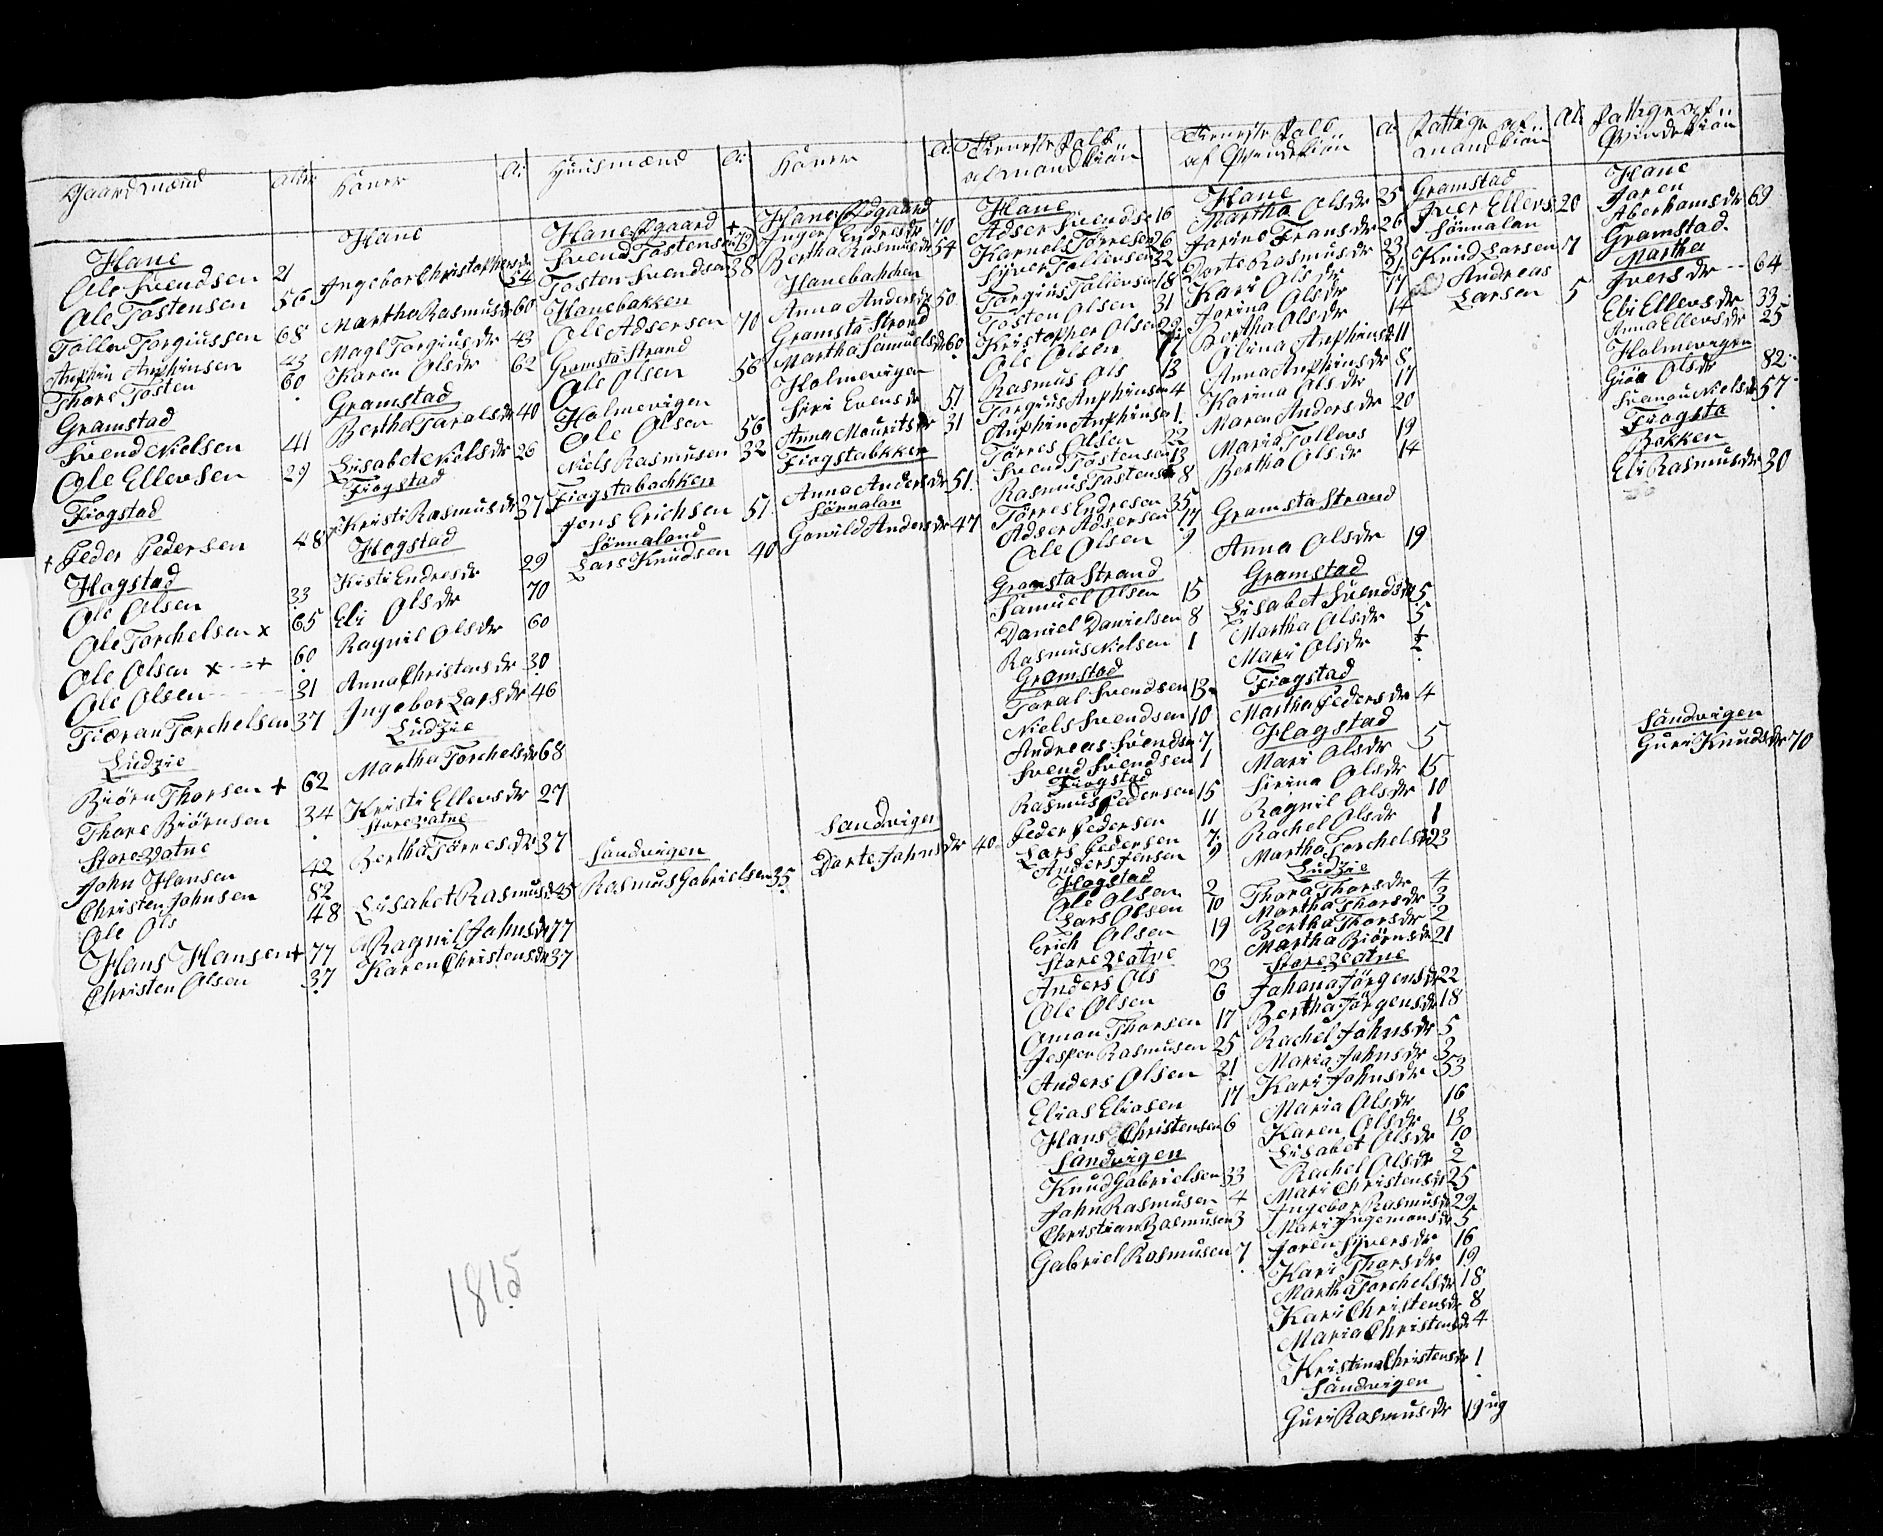 Gaardmænd
Alder
Koner
A:
Huusmænd
A:
Koner
A:
Tieneste Folk af Mandkiön
Tieneste Folk af Qvindekiön
A:
Fattige af Mandkiön
Al:
Fattige af Qvindekiön
Hane
Ole Svendsen 21
Ole Tostensen 56
Tollev Torgiussen 68
Anphin Anphinsen 43
Thore Tosten 60
Gramstad
Svend Nielsen 41
Ole Ellevsen 29
Fiogstad
+ Peder Pedersen 48
Hogstad
Ole Olsen 33
Ole Torchelsen x 65
Ole Olsen x --+ 60
Ole Olsen 31
Tiøran Torchelsen 37
Ludzie
Biørn Thorsen + 62
Thore Biørnsen 34
Storevatne
John Hansen 42
Christen Johnsen 82
Ole Ols 48
Hans Hansen + 77
Christen Olsen 37
Hane
Ingebor Christophersdr 54
Martha Rasmusdr 60
Magl Torgiusdr 43
Karen Olsdr 62
Gramstad
Bertha Taralsdr 40
Lisabet Nielsdr 26
Fiogstad
Kristi Rasmusdr 37
Hogstad
Kisti Endresdr 29
Eli Olsdr 70
Ragnil Olsdr 60
Anna Christensdr 30
Ingebor Larsdr 46
Ludzie
Martha Torchelsdr 68
Kristi Ellevsdr 27
Storevatne
Bertha Torresdr 37
Lisabet Rasmusdr 45
Ragnil Johnsdr 77
Karen Christensdr 37
Hane Ødgaard +
Svend Tostensen 73
Tosten Svendsen 38
Hanebakken
Ole Adsersen 70
Gramsta Strand
Ole Olsen 56
Holmevigen
Ole Olsen 56
Niels Rasmusen 32
Fiogstabachken
Jons Erichsen 51
Sönnaland
Lars Knudsen 40
Sandvigen
Rasmus Gabrielsen 35
Hane Ødgaard
Inger Endresdr 70
Bertha Rasmusdr 54
Hanebachken
Anna Andersdr 50
Gramsta Strand
Martha Samuelsdr 60
Holmevigen
Siri Evensdr 51
Anna Mouritsdr 31
Fiogstabkken
Anna Andersdr 51
Sönnalan
Gowild Andersdr 47
Sandvigen
Dorte Johnsdr 40
Hane
Adser Svendsen 16
Karnels Torresen 26
Syver Tollevsen 32
Torgius Tollevsen 18
Tosten Olsen 31
Kristopher Olsen
Ole Olsen
Rasmus Ols 13
Torgius Anphinsen 4
Anphin Anphinsen 1
Torres Olsen 22
Svend Tostensen 13
Rasmus Tostensen 8
Torres Endresen 35
Adser Adsersen 17
Ole Olsen 9
Gramsta Strand
Samuel Olsen 15
Daniel Danielsen 8
Rasmus Nielsen 1
Gramstad
Taral Svendsen 13
Niels Svendsen 10
Andreas Svendsen 7
Svend Svendsen 1
Fiogstad
Rasmus Pedersen 15
Peder Pedersen 11
Lars Pedersen 7
Anders Jensen 9
Hogstad
Ole Olsen 2
Lars Olsen 10
Erich Olsen 19
Storevatne
Anders Ols 23
Ole Olsen 6
Oman Thorsen 17
Jesper Rasmusen 25
Anders Olsen 21
Elias Eliasen 17
Hans Christensen 6
Sandvigen
Knud Gabrielsen 33
John Rasmusen 4
Christian Rasmusen 3
Gabriel Rasmusen 7
Hane
Martha Olsdr 35
Jorine Fransdr 26
Dorte Rasmusdr 23
Kari Olsdr 21
Jorina Olsdr 17
Bertha Olsdr 14
Olina Anphinsdr 11
Anna Anphinsdr 8
Karina Olsdr 17
Maren Andersdr 20
Maria Tollevs 19
Bertha Olsdr 14
Gramsta Strand
Anna Olsdr 19
Gramstad
Lisabet Svendsdr 5
Martha Olsdr 5
Mari Olsdr ½
Fiogstad
Martha Pedersdr 4
Hogstad
Mari Olsdr 5
Sirina Olsdr 15
Ragnil Olsdr 10
Rachel Olsdr 1
Martha Torchelsdr 23
Ludzie
Thora Thorsdr 4
Martha Thorsdr 3
Bertha Thorsdr 2
Martha Biørnsdr 21
Storevatne
Johana Jörgensdr 22
Bertha Jörgensdr 18
Rachel Johnsdr 5
Maria Johnsdr 3
Kari Johnsdr 53
Maria Olsdr 16
Karen Olsdr 13
Lisabet Olsdr 10
Rachel Olsdr 2
Mari Christensdr 25
Ingebor Rasmusdr 29
Mari Ingemansdr 5
Joren Syversdr 16
Kari Thorsdr 19
Martha Torchelsdr 18
Kari Christensdr 8
Maria Christensdr 4
Kristina Christensdr 1
Sandvigen
Guri Rasmusdr 19 ug
Gramstad
Iver Ellevs 20
Sönnalan
Knud Larsen 7
Andreas Larsen 5
Hane
Joren Aberhamsdr 69
Gramstad
Martha Iversdr 64
Eli Ellevsdr 33
Anna Ellevsdr 25
Holmevigen
Giöa Olsdr 82
Nielsdr 57
Fiogsta Bakken
Eli Rasmusdr 30
Sandvigen
Guri Knudsdr 70
1815